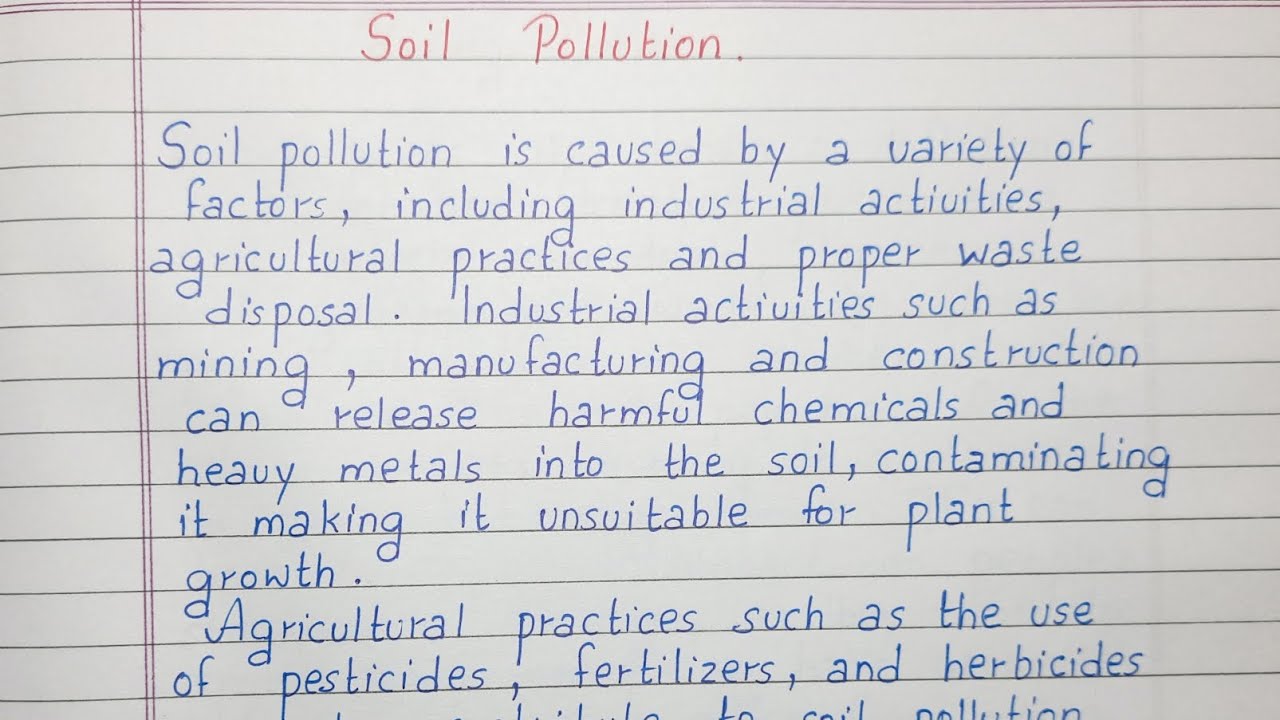 Soil Pollution.
Soil pollution is caused by a variety of
factors, including industrial activities,
agricultural practices and proper waste
disposal. Industrial activities such as
mining, manufacturing and construction
can release harmful chemicals and
heavy metals into the soil, contaminating
it making it unsuitable for plant
growth.
Agricultural practices such as the use
of pesticides, fertilizers, and herbicides
to soil pollution